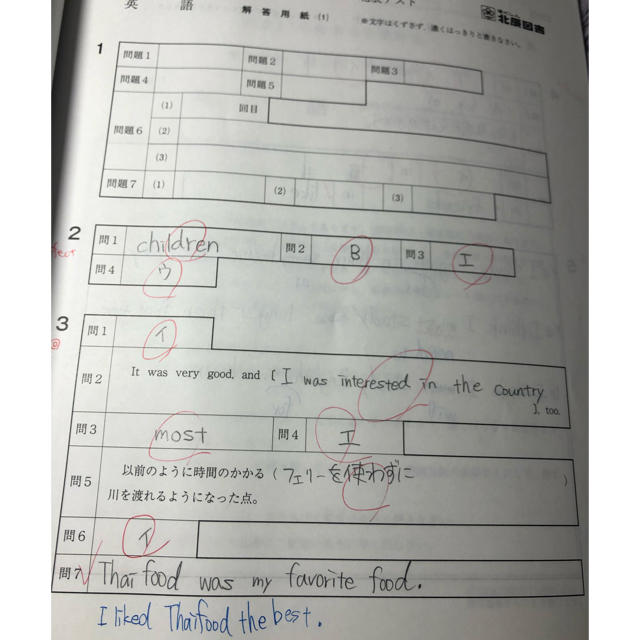 英 語 解答用紙 (1) テスト
※文字はくずさず、濃くはっきりと書きなさい。
北辰図書
1
問題1 問題2 問題3
問題4 問題5
問題6 (1) 回目
(2)
(3)
問題7 (1) (2) (3)
2
問1 children 問2 B 問3 エ
問4 ウ
3
問1 イ
問2 It was very good, and [ I was interested in the country
], too.
問3 most 問4 エ
問5 以前のように時間のかかる ( フェリーを使わずに )
川を渡れるようになった点。
問6 イ
問7 Thai food was my favorite food.
I liked Thaifood the best.